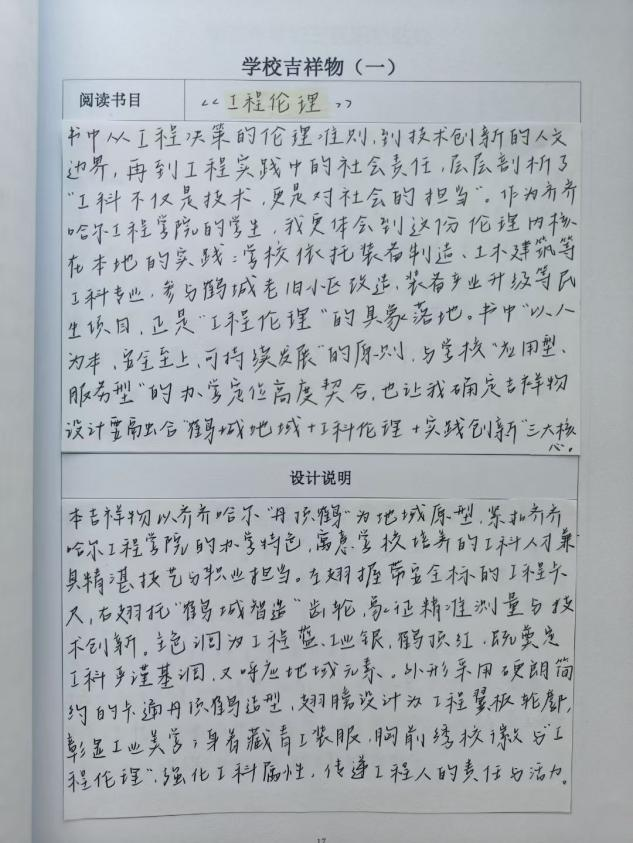 学校吉祥物（一）
阅读书目
“工程伦理”
书中从工程决策的伦理准则，到技术创新的人文
边界，再到工程实践中的社会责任，层层剖析了
“工科不仅是技术，更是对社会的担当”。作为齐齐
哈尔工程学院的学生，我更体会到这份伦理内核
在本地的实践：学校依托装备制造、土木建筑等
工科专业，参与鹤城老旧小区改造，装备产业升级等民
生项目，正是“工程伦理”的具象落地。书中“以人
为本，安全至上，可持续发展”的原则，与学校“应用型、
服务型”的办学定位高度契合，也让我确定吉祥物
设计需融合“鹤城地域+工科伦理+实践创新”三大核
心。
设计说明
本吉祥物以齐齐哈尔“丹顶鹤”为地域原型，紧扣齐齐
哈尔工程学院的办学特色，寓意学校培养的工科人才兼
具精湛技艺与职业担当。左翅握带安全标的工程卡
尺，右翅托“鹤城智造”齿轮，象征精准测量与技
术创新。主色调为工程蓝、工业银、鹤顶红，既奠定
工科严谨基调，又呼应地域元素。外形采用硬朗简
约的卡通丹顶鹤造型，翅膀设计为工程翼板轮廓，
彰显工业美学；身着藏青工装服，胸前绣校徽与“工
程伦理”，强化工科属性，传递工程人的责任与活力。
17